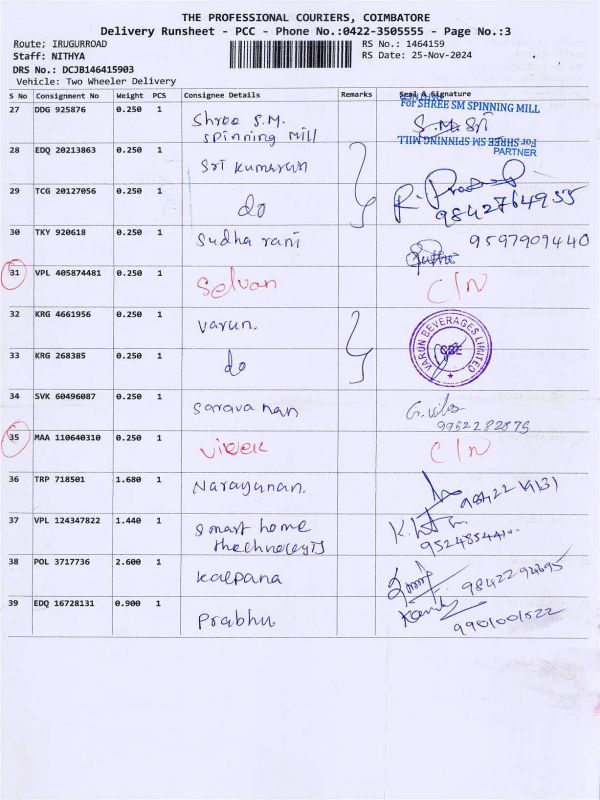 THE PROFESSIONAL COURIERS, COIMBATORE
Delivery Runsheet - PCC - Phone No.:0422-3505555 - Page No.:3
Route: IRUGURROAD
Staff: NITHYA
DRS No.: DCJB146415903
Vehicle: Two Wheeler Delivery
RS No.: 1464159
RS Date: 25-Nov-2024
S No Consignment No Weight PCS Consignee Details Remarks Seal & Signature
27 DDG 925876 0.250 1 Shree S.M. Spinning Mill For SHREE SM SPINNING MILL S.M. Sri
For SHREE SM SPINNING MILL
PARTNER
28 EDQ 20213863 0.250 1 Sri Kumaran
29 TCG 20127056 0.250 1 do 9842764955
30 TKY 920618 0.250 1 Sudha rani 9597909440
31 VPL 405874481 0.250 1 Selvan C/N
32 KRG 4661956 0.250 1 Varun. VARUN BEVERAGES LIMITED CBE
33 KRG 268385 0.250 1 do
34 SVK 60496087 0.250 1 Saravanan 9952282875
35 MAA 110640310 0.250 1 Vivek C/N
36 TRP 718501 1.680 1 Narayanan.
37 VPL 124347822 1.440 1 Smart home
38 POL 3717736 2.600 1 Kalpana
39 EDQ 16728131 0.900 1 Prabhu 9901001522